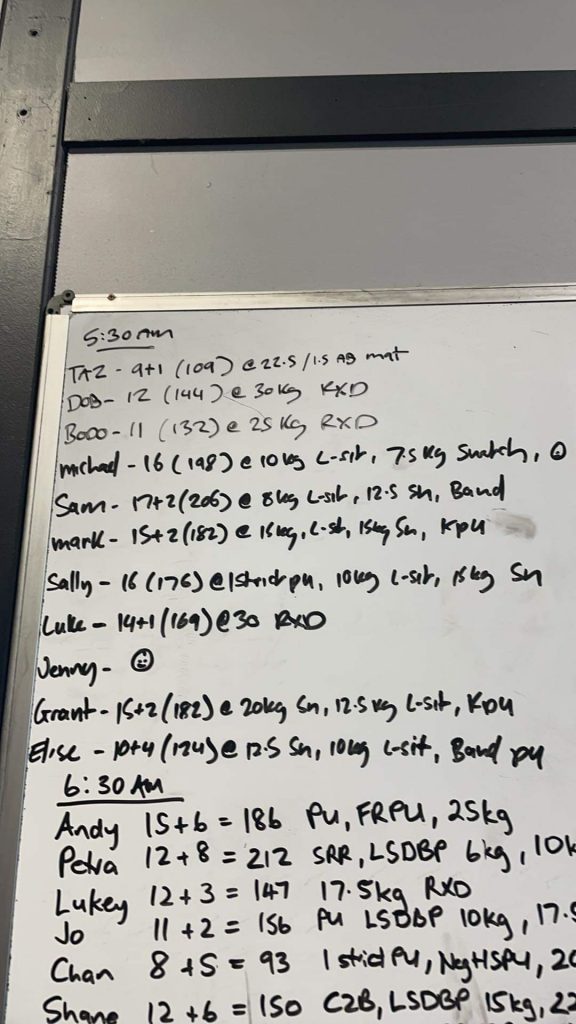 5:30 AM
TAZ - 9+1 (109) @ 22.5 / 1.5 AB mat
DOB - 12 (144) @ 30kg RXD
BODO - 11 (132) @ 25kg RXD
michael - 16 (198) @ 10kg L-sit, 7.5kg Snatch,
Sam - 17+2 (206) @ 8kg L-sit, 12.5 Sn, Band
mark - 15+2 (182) @ 15kg, L-sit, 15kg Sn, Kpu
Sally - 16 (176) @ 1 Strict pu, 10kg L-sit, 15kg Sn
Luke - 14+1 (169) @ 30 RXD
Jenny - ☺
Grant - 15+2 (182) @ 20kg Sn, 12.5kg L-sit, Kpu
Elise - 10+4 (124) @ 12.5 Sn, 10kg L-sit, Band pu
6:30 AM
Andy 15+6 = 186 PU, FRPU, 25kg
Petra 12+8 = 212 SRR, LSDBP 6kg, 10k
Lukey 12+3 = 147 17.5kg RXD
Jo 11+2 = 156 PU LSDBP 10kg, 17.5
Chan 8+5 = 93 1 strict PU, NegHSPU, 20
Shane 12+6 = 150 C2B, LSDBP 15kg, 22